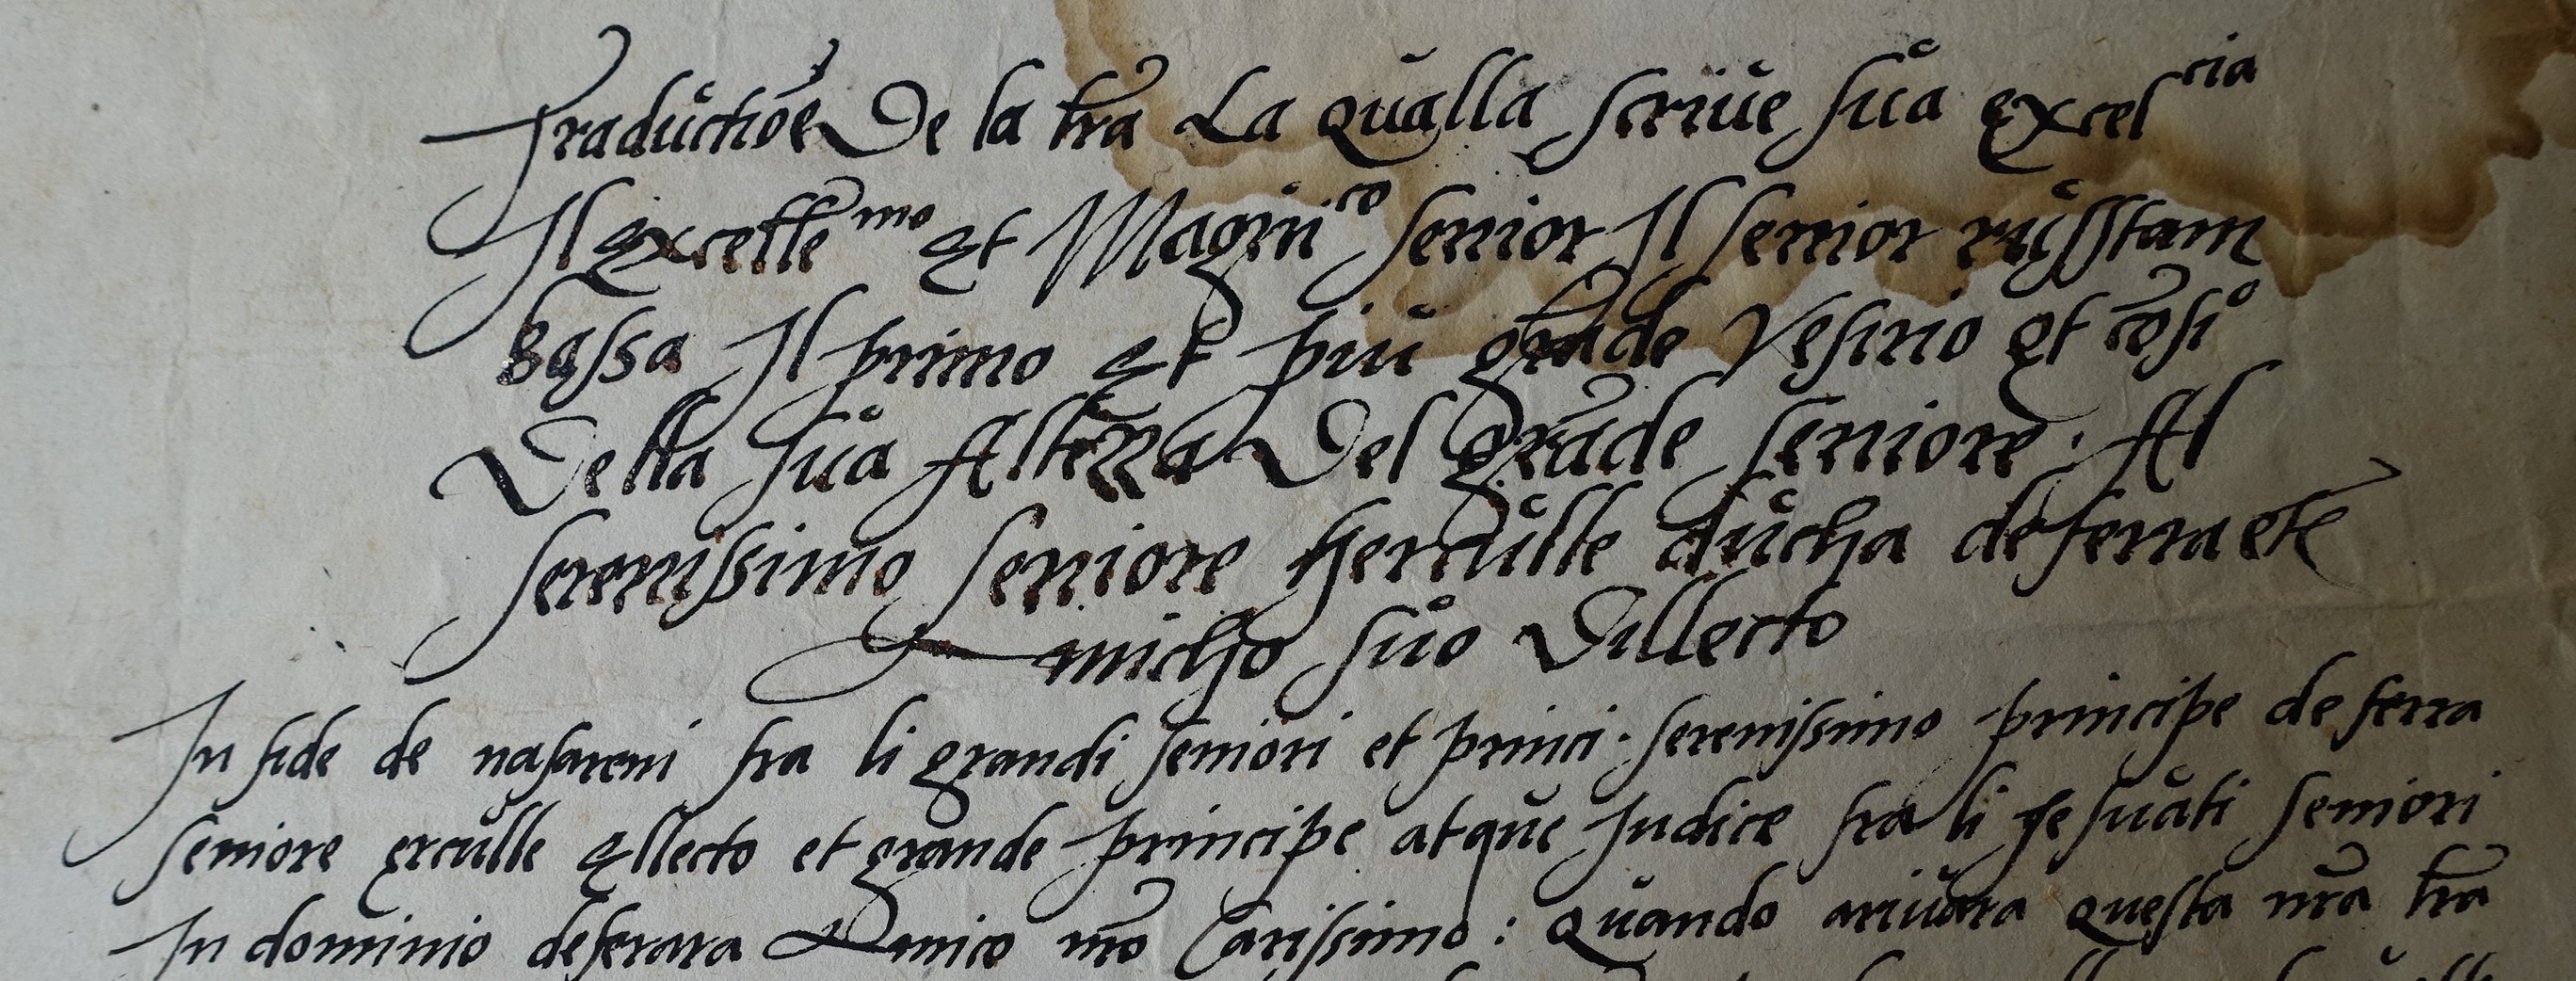 Traductiōe De la lrā La qualla scriue sua excel cia
Il excelle mo et Magni co senior Il senior russtam
bassa Il primo et piu grāde Vesirio et cōsi
Della sua Altezza Del grāde seniore. Al
serenissimo seniore herculle ducha de ferra et
micho suo Dillecto
In fide de nasareni fra li grandi seniori et princi. serenissimo principe de ferra
seniore erculle ellecto et grande principe atque Iudice fra li Iesuati seniori
In dominio de ferara Amico nro Carissimo: quando ariuara questa nrā lrā